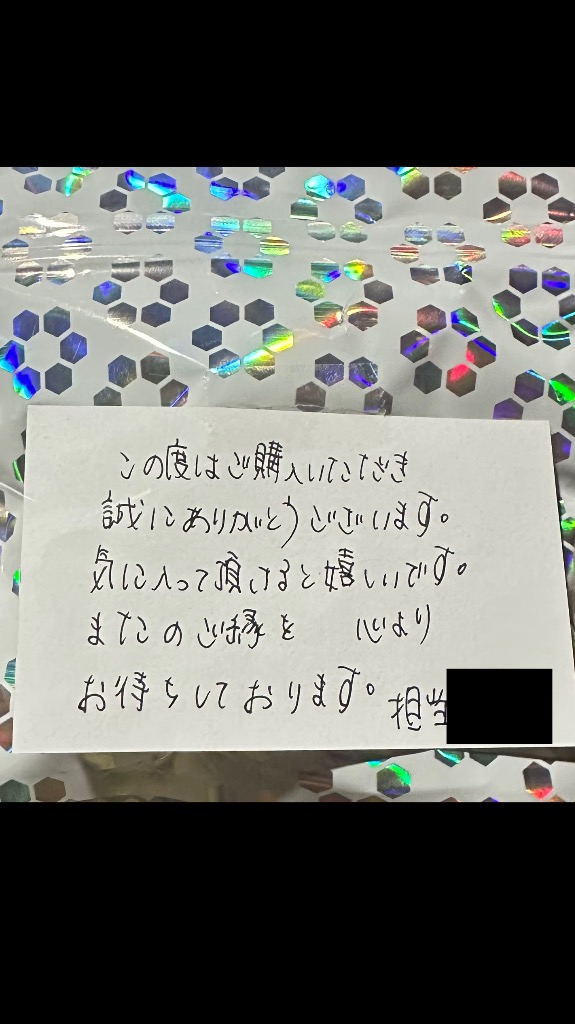 この度はご購入いただき
誠にありがとうございます。
気に入って頂けると嬉しいです。
またのご縁を 心より
お待ちしております。 担当